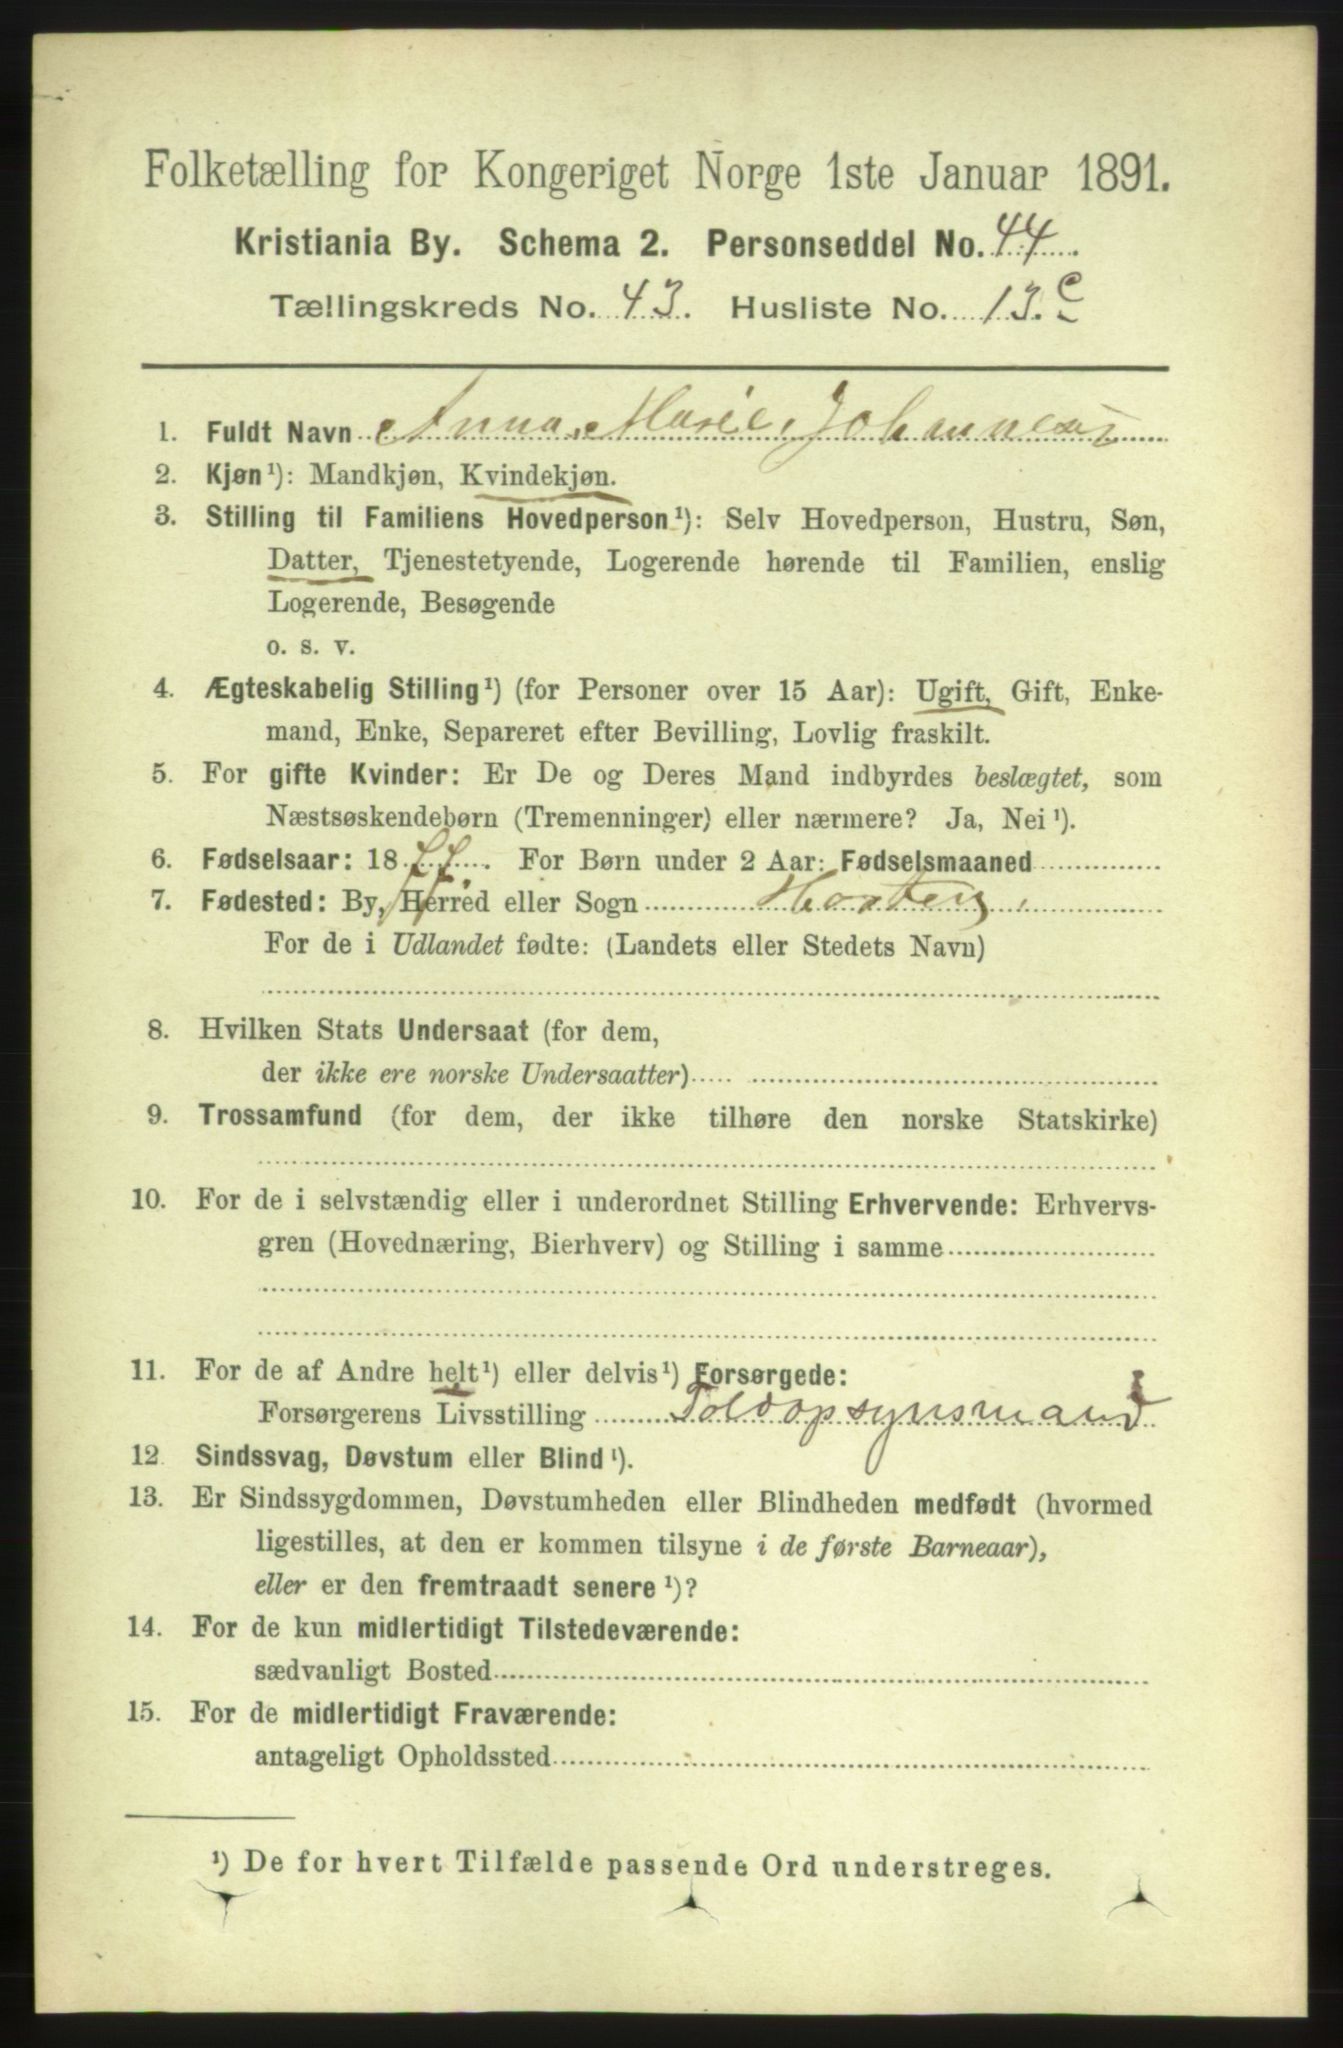 Folketælling for Kongeriget Norge 1ste Januar 1891.
Kristiania By. Schema 2. Personseddel No. 44
Tællingskreds No. 43. Husliste No. 13.c
1. Fuldt Navn Anna Marie Johannesen
2. Kjøn¹): Mandkjøn, Kvindekjøn.
3. Stilling til Familiens Hovedperson¹): Selv Hovedperson, Hustru, Søn,
Datter, Tjenestetyende, Logerende hørende til Familien, enslig
Logerende, Besøgende
o. s. v.
4. Ægteskabelig Stilling¹) (for Personer over 15 Aar): Ugift, Gift, Enke-
mand, Enke, Separeret efter Bevilling, Lovlig fraskilt.
5. For gifte Kvinder: Er De og Deres Mand indbyrdes beslægtet, som
Næstsøskendebørn (Tremenninger) eller nærmere? Ja, Nei¹).
6. Fødselsaar: 1877. For Børn under 2 Aar: Fødselsmaaned
7. Fødested: By, Herred eller Sogn Horten
For de i Udlandet fødte: (Landets eller Stedets Navn)
8. Hvilken Stats Undersaat (for dem,
der ikke ere norske Undersaatter)
9. Trossamfund (for dem, der ikke tilhøre den norske Statskirke)
10. For de i selvstændig eller i underordnet Stilling Erhvervende: Erhvervs-
gren (Hovednæring, Bierhverv) og Stilling i samme
11. For de af Andre helt¹) eller delvis¹) Forsørgede:
Forsørgerens Livsstilling Toldopsynsmand
12 Sindssvag, Døvstum eller Blind¹).
13. Er Sindssygdommen, Døvstumheden eller Blindheden medfødt (hvormed
ligestilles, at den er kommen tilsyne i de første Barneaar),
eller er den fremtraadt senere¹)?
14. For de kun midlertidigt Tilstedeværende:
sædvanligt Bosted
15. For de midlertidigt Fraværende:
antageligt Opholdssted
¹) De for hvert Tilfælde passende Ord understreges.